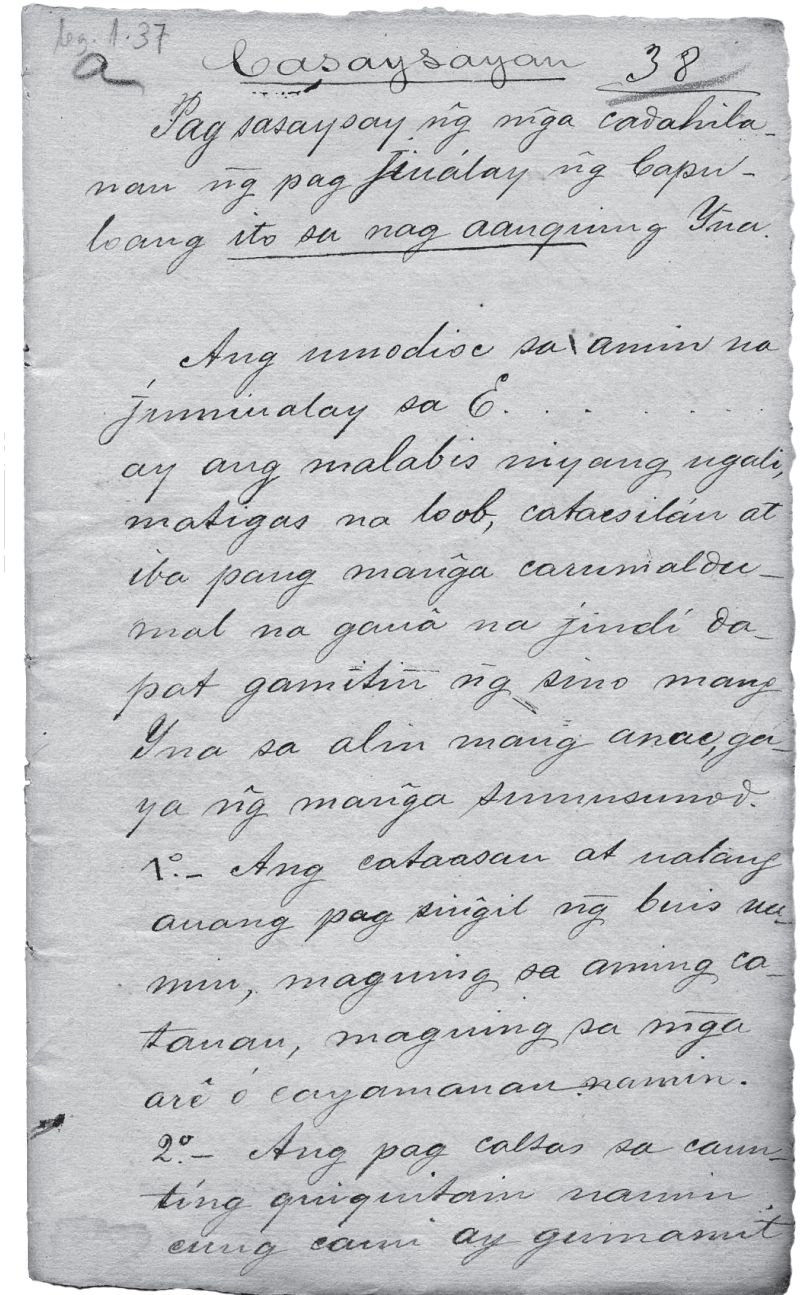 Leg. 1. 37
a Casaysayan 38
Pag sasaysay ñg mg̃a cadahila-
nan ñg pag Jiuálay ñg Capu-
loang ito sa nag aanquing Yna.
Ang umodioc sa amin na
jumiualay sa E. . . . . . .
ay ang malabis niyang ugali,
matigas na loob, catacsilán at
iba pang mang̃a carumaldu-
mal na gauâ na jindí da-
pat gamitin ñg sino mang
Yna sa alin mang anac, ga-
ya ñg mang̃a sumusunod.
1º.- Ang cataasan at ualang
auang pag sing̃il ñg buis na-
min, maguing sa aming ca-
tauan, maguing sa mg̃a
arê ó cayamanan namin.
2º.- Ang pag caltas sa caun-
ting quiquitain namin
cung cami ay gumamit